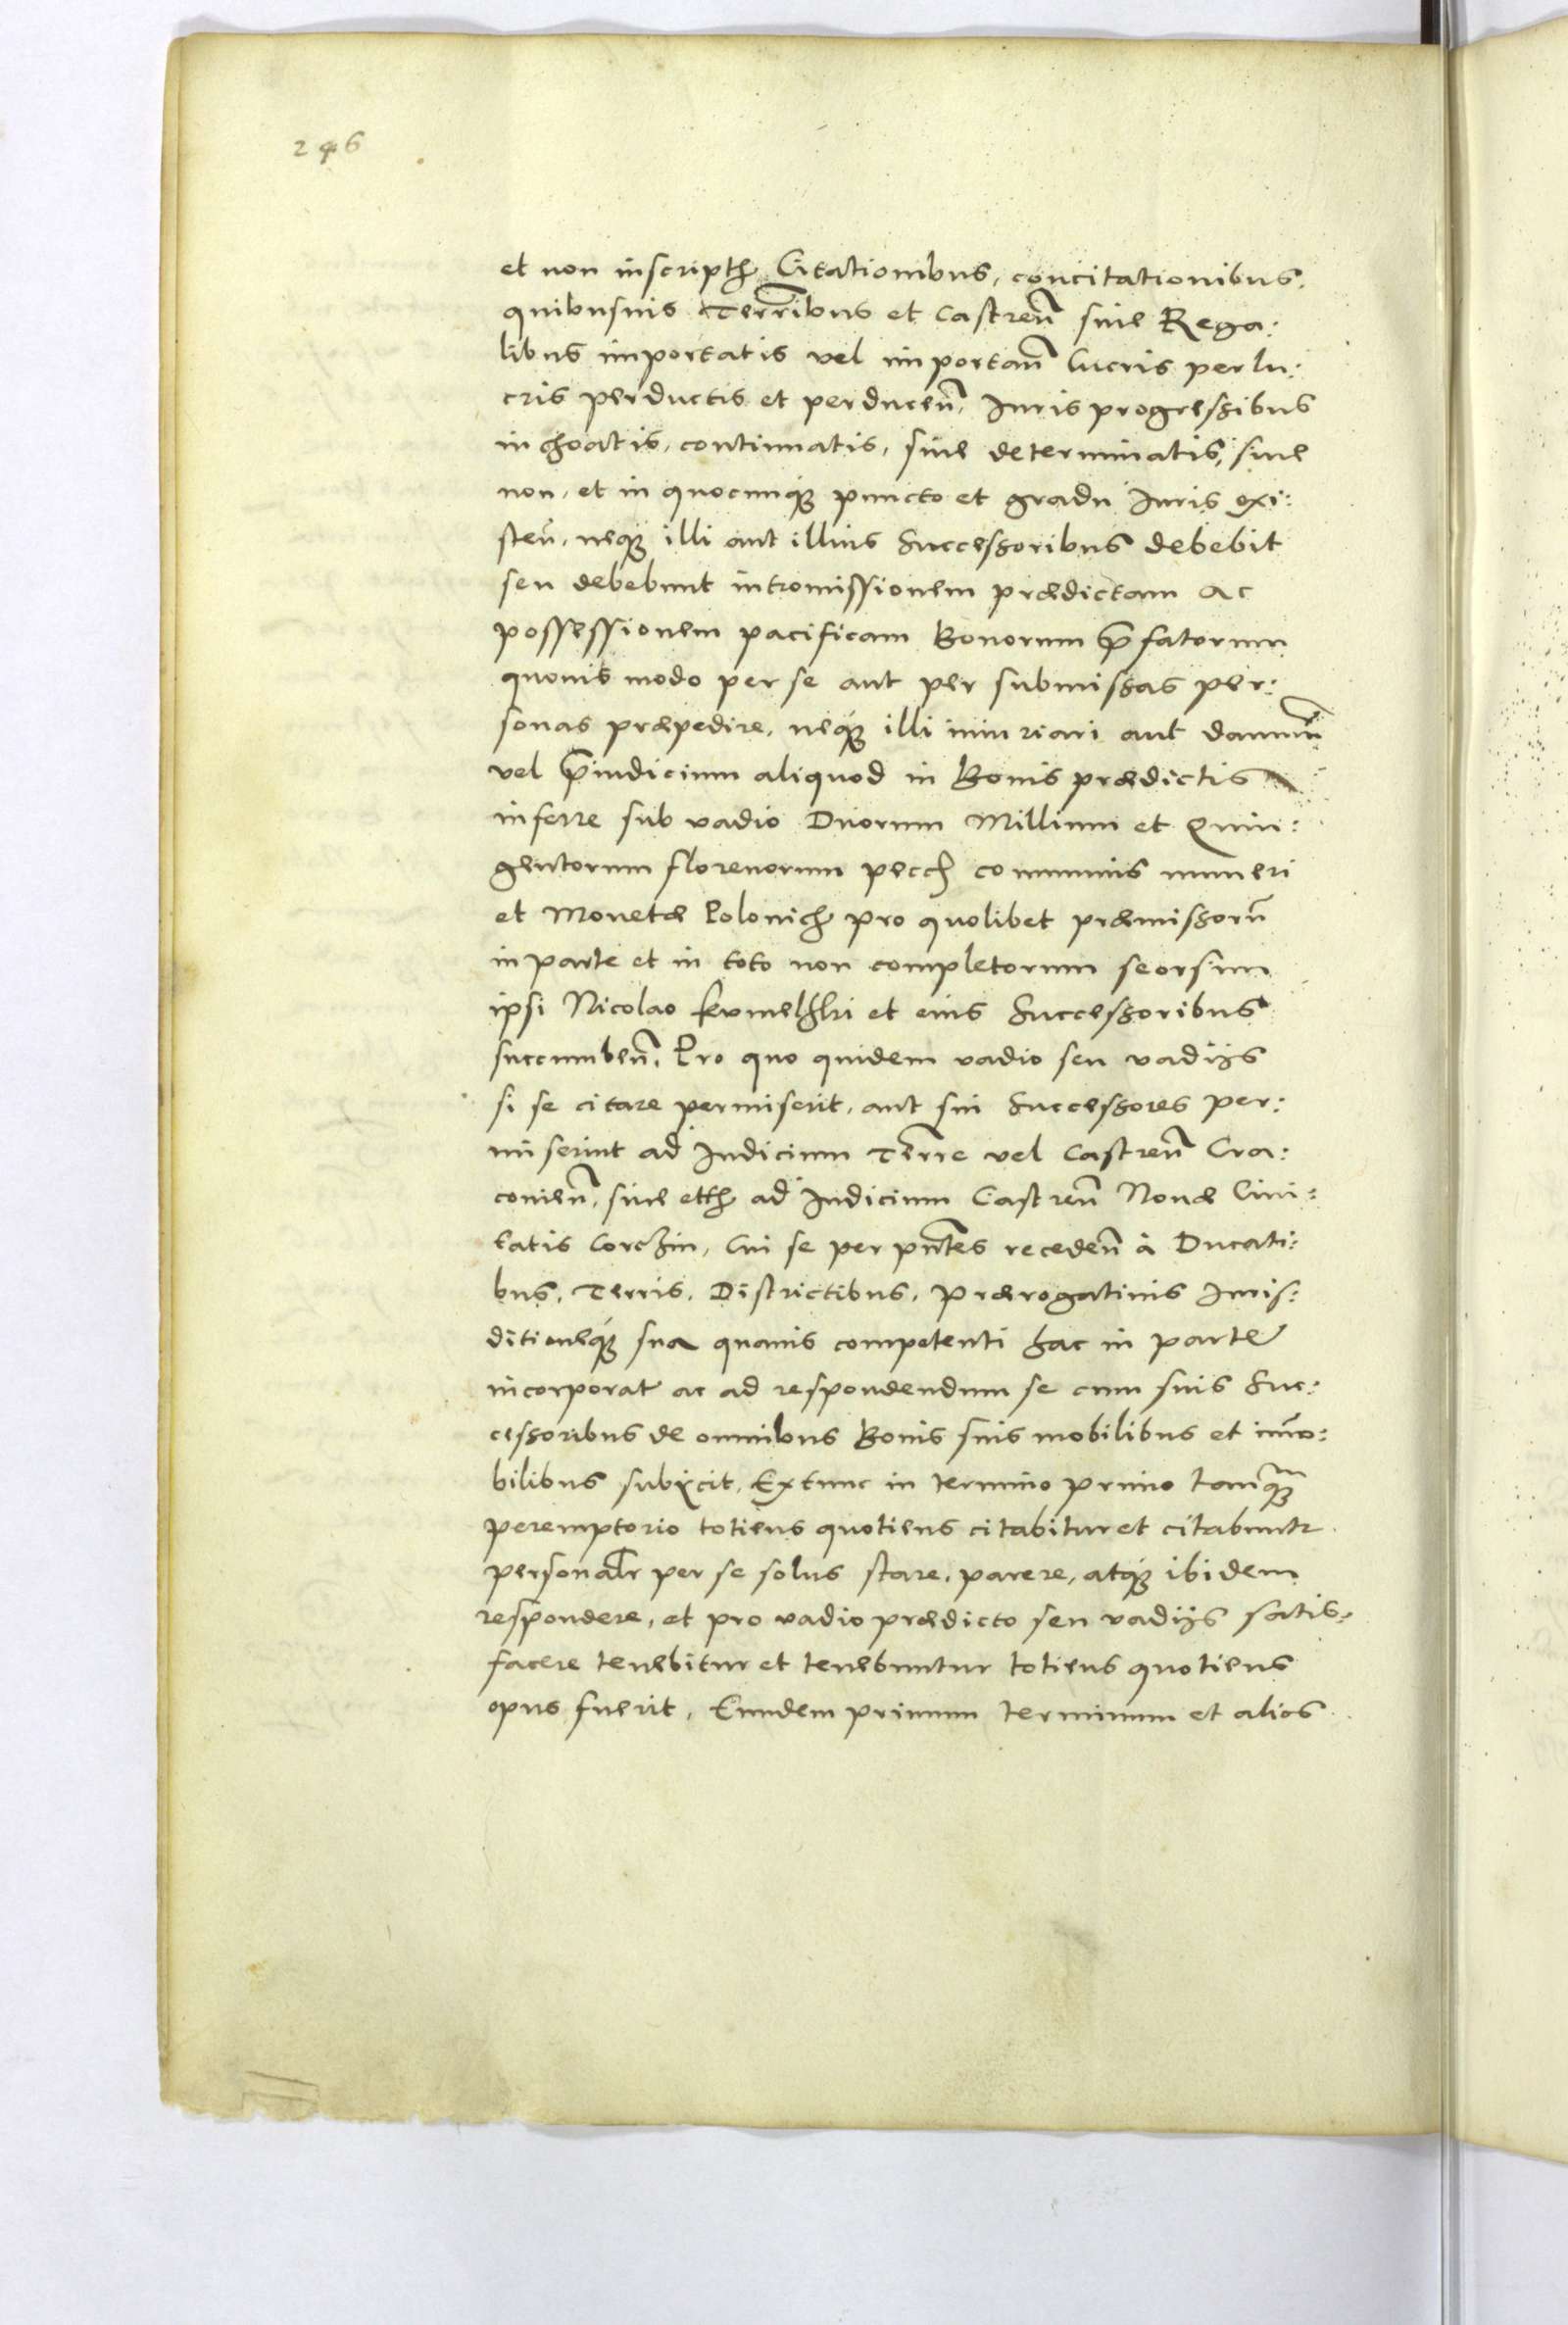 246
et non inscriptę Citationibus, concitationibus,
quibusuis Terrribus et Castreñ siue Rega:
libus importatis vel importañ lucris perlu:
cris perductis et perduceñ, Iuris progressibus
inchoatis, continuatis, siue determinatis, siue
non, et in quocunq3 puncto et gradu Iuris exi:
steñ, neq3 illi aut illius Successoribus debebit
seu debebunt intromissionem prædictam Ac
possessionem pacificam Bonorum p̃fatorum
quouis modo per se aut per submissas per:
sonas præpedire, neq3 illi iniuriari aut damnũ
vel p̃iudicium aliquod in Bonis prædictis
inferre sub vadio Duorum Millium et Quin:
gentorum florenorum pecę communis numeri
et Monetæ Polonicę pro quolibet præmissorũ
in parte et in toto non completorum seorsum
ipsi Nicolao et eius Successoribus
succumbeñ, Pro quo quidem vadio seu vadijs
si se citare permiserit, aut sui Successores per:
miserint ad Iudicium Terrre vel Castreñ Cra:
couieñ, siue etę ad Iudicium Castreñ Nouæ Ciui:
tatis Corczin, Cui se per p̃ntes recedeñ à Ducati:
bus, Terris, Districtibus, Prærogatiuis Iuris:
ditioneq3 sua quauis competenti hac in parte
incorporat ac ad respondendum se cum suis Suc:
cessoribus de omnibus Bonis suis mobilibus et im̃o:
bilibus subijcit, Extunc in termino primo tanq̃3
peremptorio totiens quotiens citabitur et citabuntr
personalr per se solus stare, parere, atq3 ibidem
respondere, et pro vadio prædicto seu vadijs satis:
facere tenebitur et tenebuntur totiens quotiens
opus fuerit, Eundem primum terminum et alios